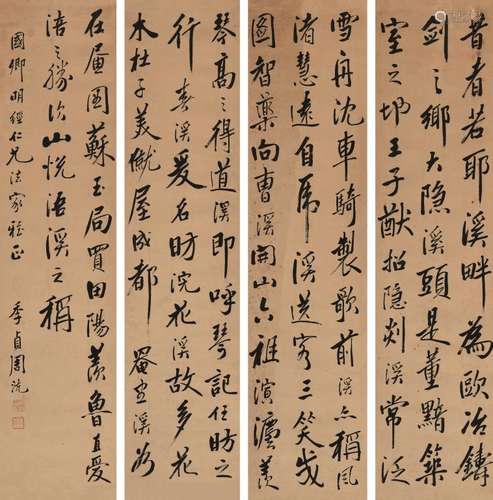 昔者若耶溪畔為歐冶鑄
劍之鄉大隱溪頭是董黯築
室之地王子猷招隱剡溪常泛
雪舟沈車騎製歌前溪亦稱風
渚慧遠自虎溪送客三笑成
圖智藥向曹溪開山六祖演瀘羨
琴高之得道溪即呼琴記任昉之
行春溪爰名昉浣花溪故多花
木杜子美僦屋成都罨畫溪
在屠國蘇玉局買田陽羨魯直愛
浯之勝次山悅浯溪之稱
國卿明經仁兄法家雅正
季貞周沆